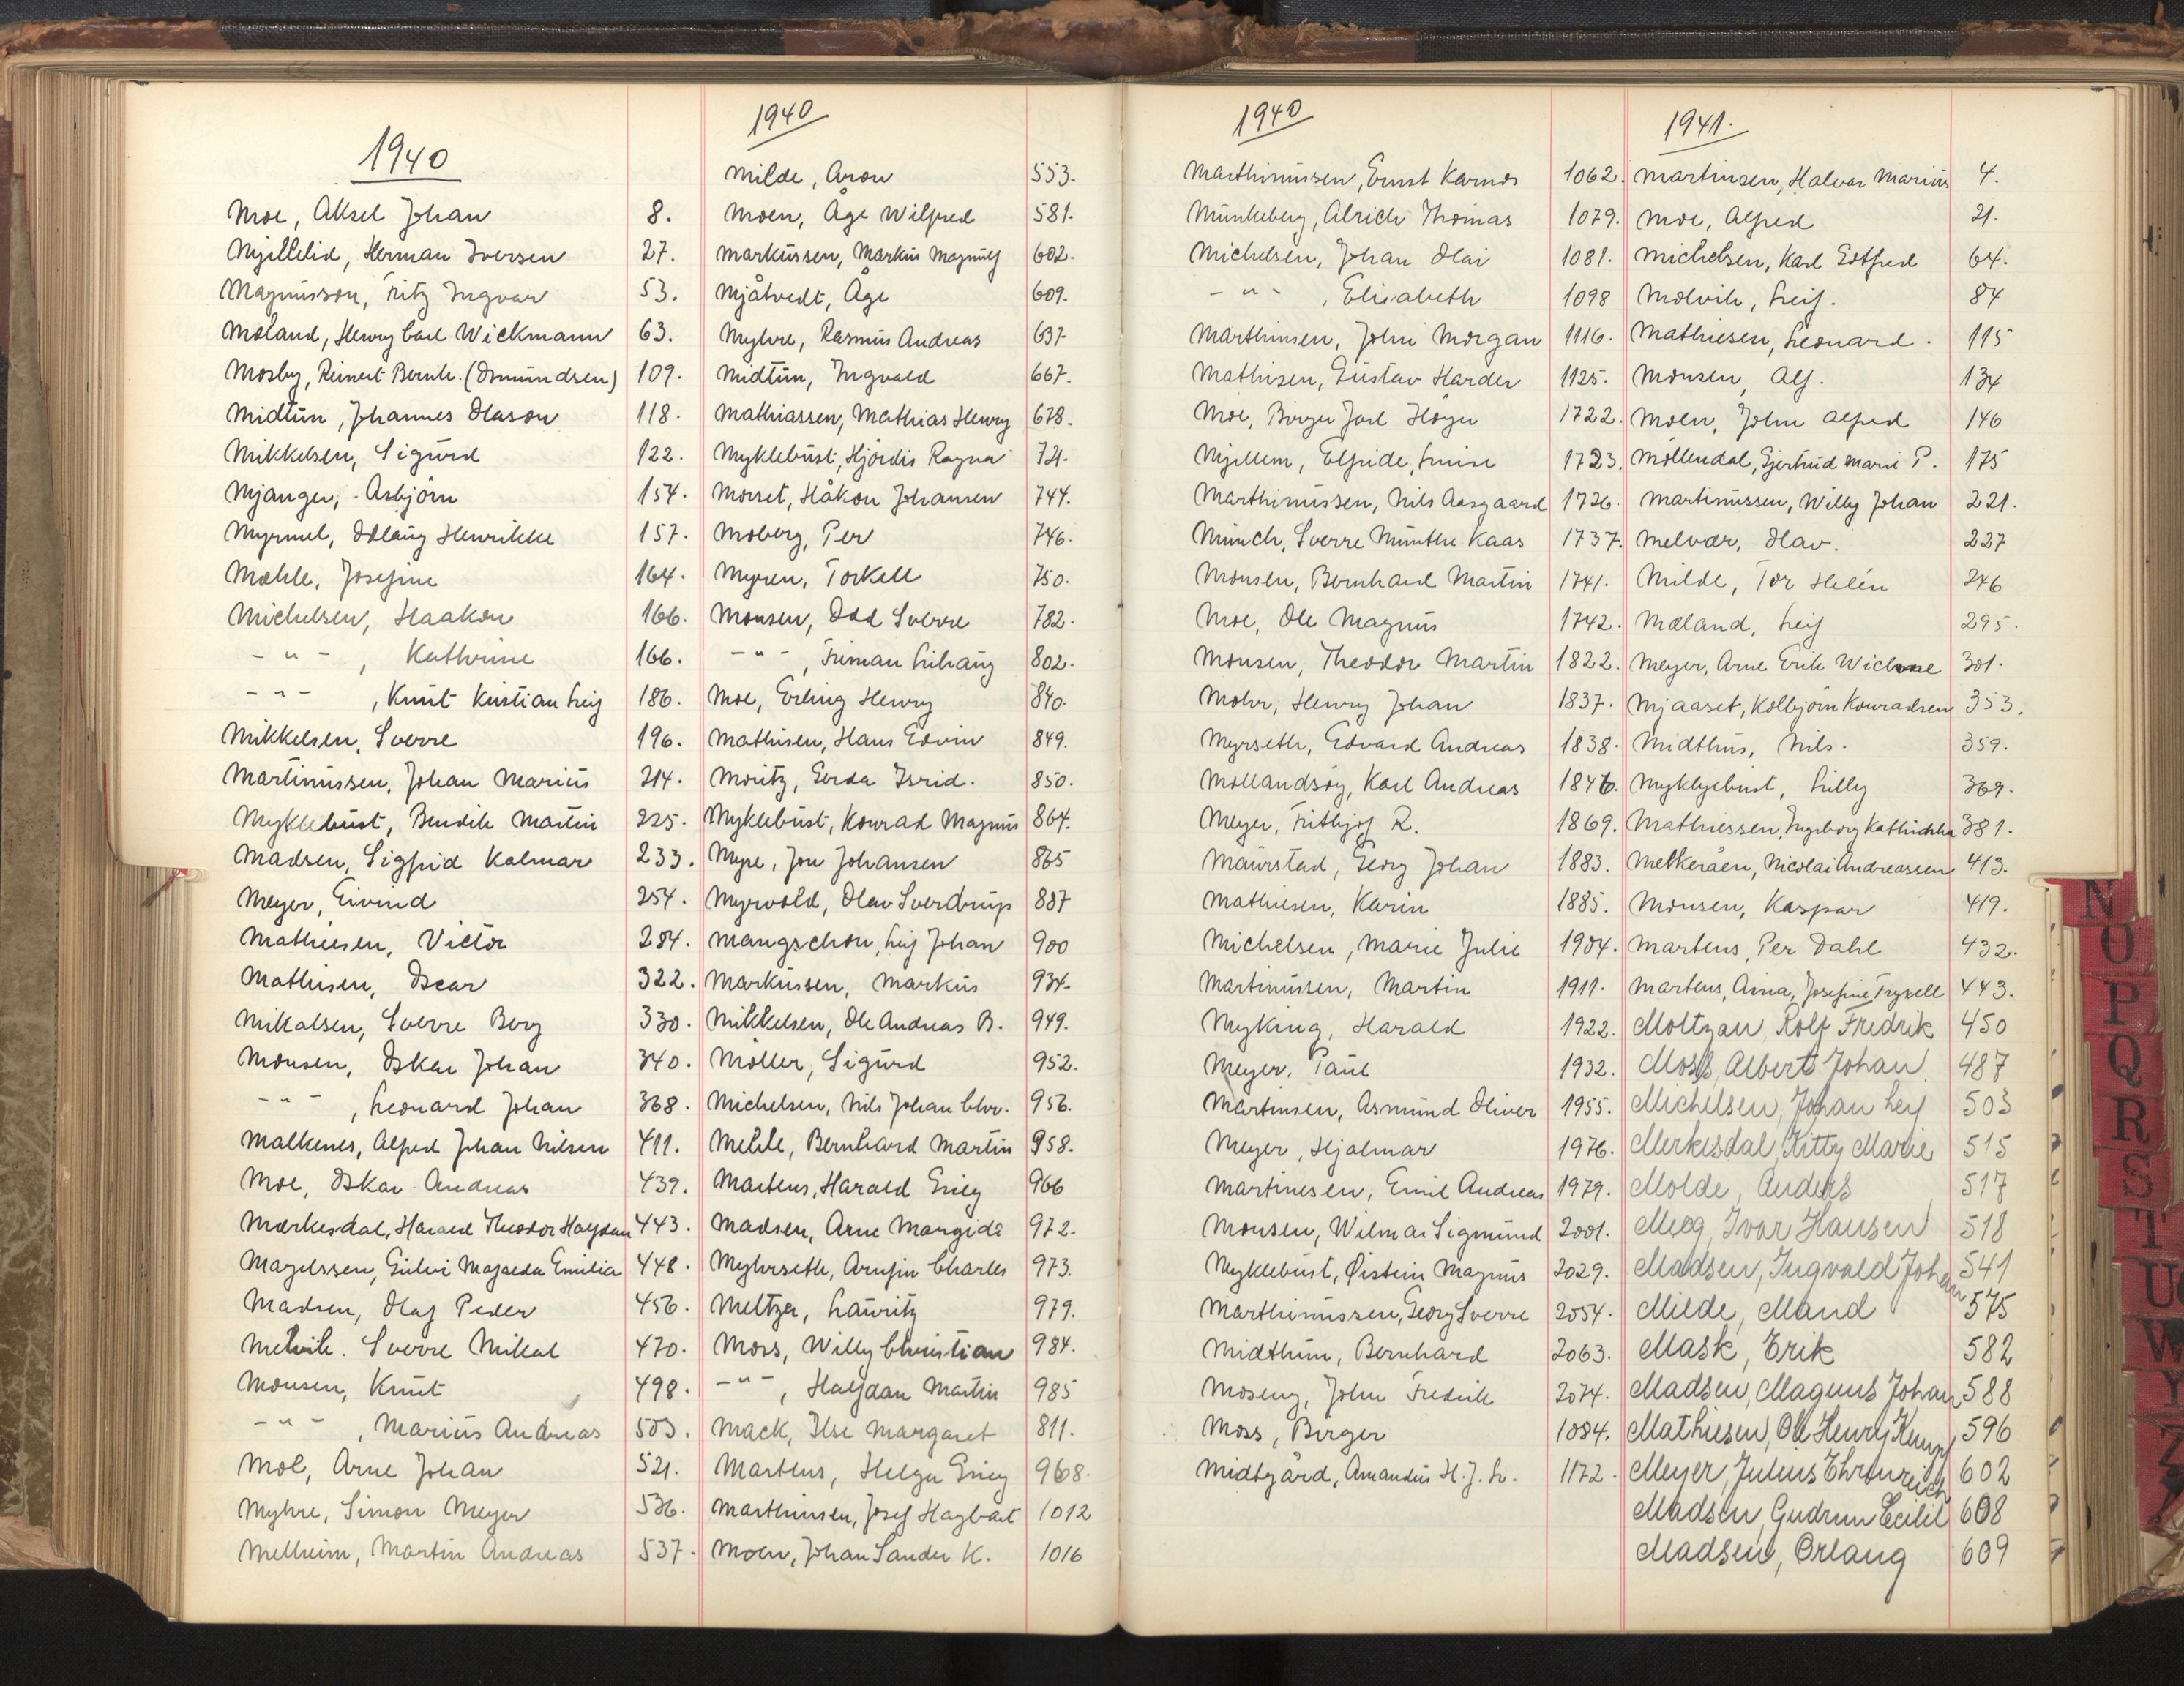 1940
Moe, Aksel Johan 8.
Mjelldid, Herman Iversen 27.
Magnusson, Fritz Ingvar 53.
Moland, Henry Carl Wickmann 63.
Mosby, Reinert Bernh. (Osmundsen) 109.
Midtun, Johannes Olason 118.
Mikkelsen, Sigurd 122.
Mjanger, Asbjörn 154.
Myrmel, Odlaug Henrikke 157.
Mæhle, Josefine 164.
Michelsen, Haakon 166.
- " - , Kathrine 166.
- " - , Knut Kristian Leif 186.
Mikkelsen, Sverre 196.
Martinussen, Johan Marius 214.
Myklebust, Bendik Martin 225.
Madsen, Sigfrid Kalmar 233.
Meyer, Eivind 254.
Mathiesen, Victor 284.
Mathisen, Oscar 322.
Mikalsen, Sverre Berg 330.
Monsen, Oskar Johan 340.
- " - , Leonard Johan 368.
Malkenes, Alfred Johan Nilsen 411.
Moe, Oskar Andreas 439.
Mærkesdal, Harald Theodor Halfdan 443.
Magelssen, Gulvi Magdeda Emilia 448.
Madsen, Olaf Peder 456.
Melvik. Sverre Mikal 470.
Monsen, Knut 498.
- " - , Marius Andreas 503.
Moe, Arne Johan 521.
Myhre, Simon Meyer 536.
Melheim, Martin Andreas 537.
1940
Milde, Aron 553.
Moen, Åge Wilfred 581.
Markussen, Markus Magnulf 602.
Mjåtvedt, Åge 609.
Myhre, Rasmus Andreas 637
Midtun, Ingvald 667.
Mathiassen, Mathias Henry 678.
Myklebust, Hjördis Ragna 721.
Morset, Håkon Johansen 744.
Moberg, Per 746.
Myren, Torkell 750.
Monsen, Odd Sverre 782.
- " - , Friman Lihaug 802.
Moe, Erling Henry 840.
Mathisen, Hans Edvin 849.
Moritz, Gerda Isrid. 850.
Myklebust, Konrad Magnus 864.
Myre, Jon Johansen 865
Myrvold, Olav Sverdrup 887
Mangschou, Leif Johan 900
Markussen, Markus 934.
Mikkelsen, Ole Andreas B. 949.
Möller, Sigurd 952.
Michelsen, Nils Johan Chr. 956.
Mehle, Bernhard Martin 958.
Martens, Harald Grieg 966
Madsen, Arne Margido 972.
Myhrseth, Arnfin Charles 973.
Meltzer, Lauritz 979.
Moss, Willy Christian 984.
- " - , Halfdan Martin 985
Mack, Ilse Margaret 811.
Martens, Helge Grieg 968.
Marthinsen, Josef Hagbart 1012
Moen, Johan Sander K. 1016
1940
Marthinussen, Ernst Karnos 1062.
Munkeberg, Alrich Thomas 1079.
Michelsen, Johan Olai 1081.
- " - , Elisabeth 1098
Marthinsen, John Morgan 1116.
Mathisen, Gustav Harder 1125.
Moe, Birger Jarl Höyer 1722.
Mjellem, Elfride Luise 1723.
Marthinussen, Nils Aasgaard 1726.
Munch, Sverre Munthe Kaas 1737.
Monsen, Bernhard Martin 1741.
Moe, Ole Magnus 1742.
Monsen, Theodor Martin 1822.
Mohr, Henry Johan 1837.
Myrseth, Edvard Andreas 1838.
Mollandsöy, Karl Andreas 1846.
Meyer, Frithjof R. 1869.
Maurstad, Georg Johan 1883.
Mathiesen, Karin 1885.
Michelsen, Marie Julie 1904.
Martinussen, Martin 1911.
Myking, Harald 1922.
Meyer, Paul 1932.
Martinsen, Asmund Oliver 1955.
Meyer, Hjalmar 1976.
Martinesen, Emil Andreas 1979.
Monsen, Wilmar Sigmund 2001.
Myklebust, Øistein Magnus 2029.
Marthinussen, Georg Sverre 2054.
Midthun, Bernhard 2063.
Moseng, John Fredrik 2074.
Moss, Birger 1084.
Midtgård, Amandus H. J. Lr. 1172.
1941.
Martinsen, Halvar Marius 4.
Moe, Alfred 21.
Michelsen, Karl Gotfred 64.
Molvik, Leif. 84
Mathiesen, Leonard. 115
Monsen, Alf. 134
Moen, John Alfred 146
Möllendal, Gjertrud Marie P. 175
Martinussen, Willy Johan 221.
Melvær, Olav. 227
Milde, Tor Helén 246
Mæland, Leif 295.
Meyer, Arne Erik Wichne 301.
Mjaaset, Kolbjörn Konradsen 353.
Midthus, Nils. 359.
Myklyebust, Lilly 369.
Mathiessen, Ingeborg Kathinka 381.
Melkeråen, Nicolai Andreassen 413.
Monsen, Kaspar 419.
Martens, Per Dahl 432.
Martens, Aina, Josefine Trysell 443.
Moltzau, Rolf Fredrik 450
Moss, Albert Johan 487
Michelsen, Johan Leif 503
Merkesdal, Kitty Marie 515
Molde, Anders 517
Meog, Ivar Hansen 518
Madsen, Ingvald Johan 541
Milde, Mand 575
Mask, Erik 582
Madsen, Magnus Johan 588
Mathiesen, Ole Henry Kempf 596
Meyer, Julius Ehrenreich 602
Madsen, Gudrun Ecilie 608
Madsen, Orlaug 609
N
O
P
Q
R
S
T
U
W
Y
Z